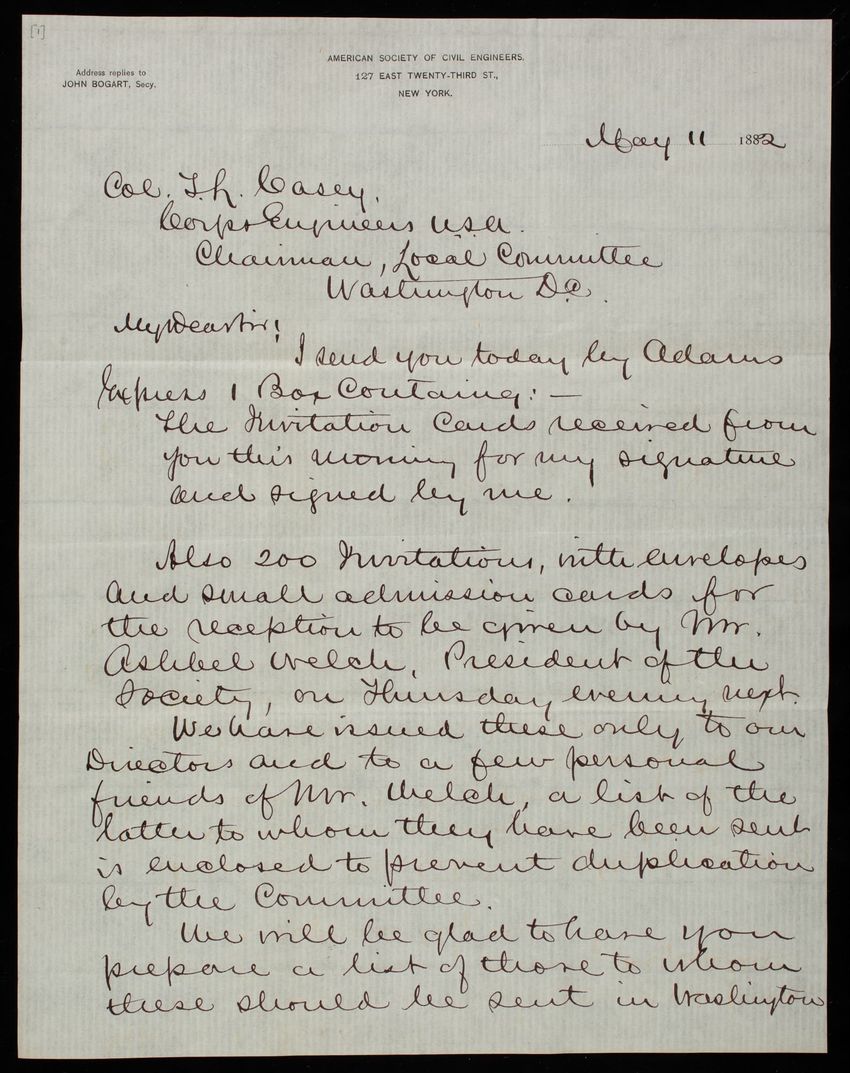 [1]
AMERICAN SOCIETY OF CIVIL ENGINEERS.
127 EAST TWENTY-THIRD ST.,
NEW YORK.
Address replies to
JOHN BOGART, Secy.
May 11 1882
Col. T. L. Casey,
Corps Engineers U.S.A.
Chairman, Local Committee
Washington D.C.
My Dear Sir!
I send you today by Adams
Express 1 Box Containg: —
The Invitation Cards received from
you this morning for my signature
and signed by me.
Also 200 Invitations, with envelopes
and small admission cards for
the reception to be given by Mr.
Ashbel Welch, President of the
Society, on Thursday evening next.
We have issued these only to our
Directors and to a few personal
friends of Mr. Welch, a list of the
latter to whom they have been sent
is enclosed to prevent duplication
by the Committee.
We will be glad to have you
prepare a list of those to whom
these should be sent in Washington